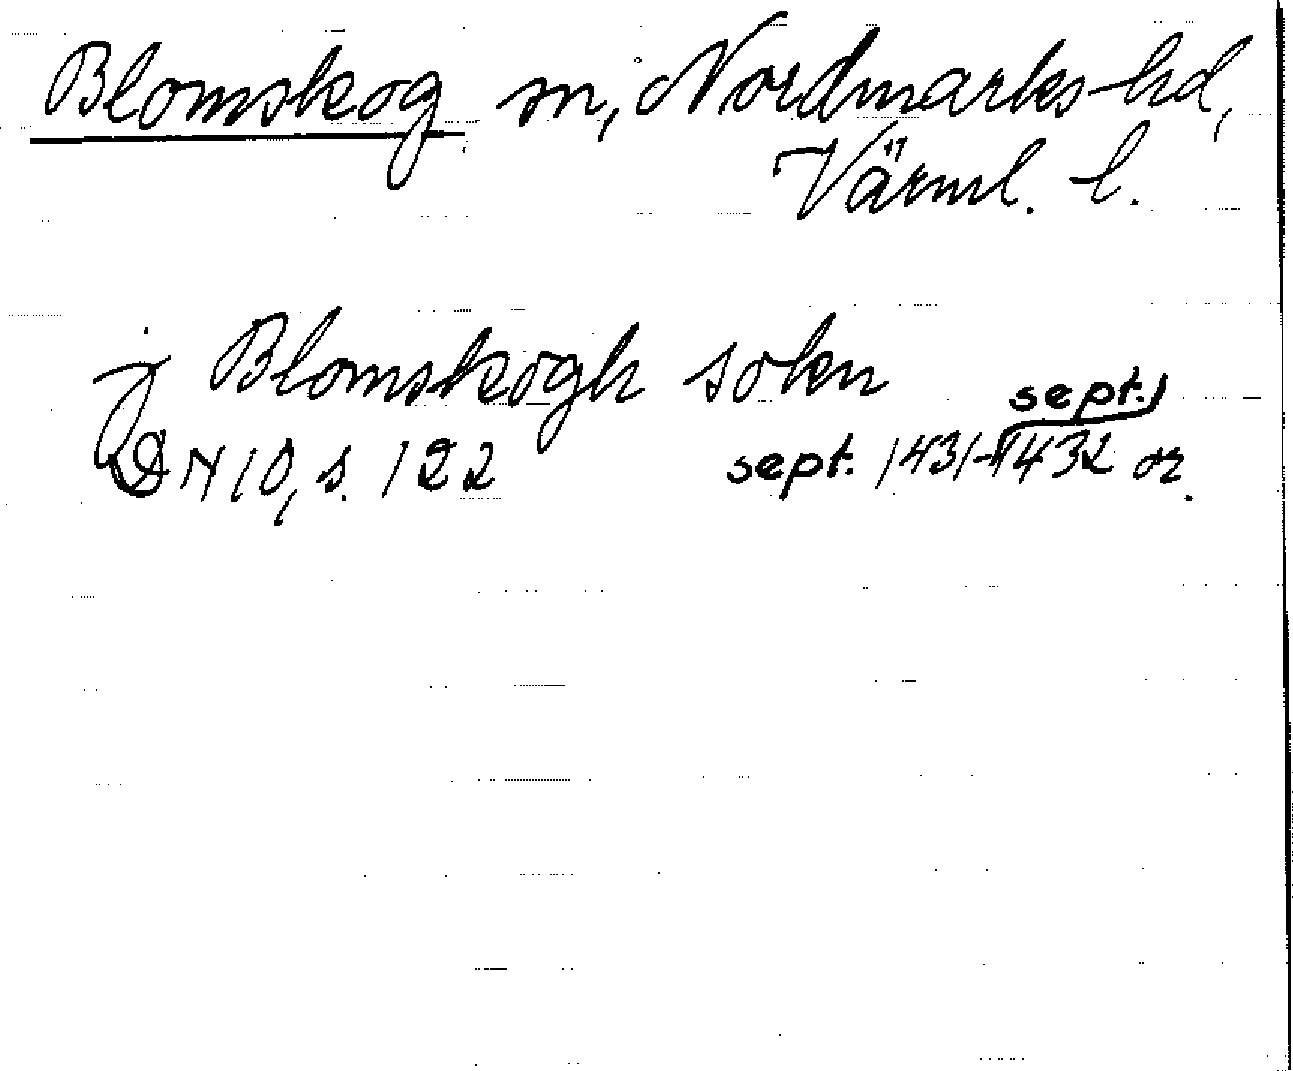 Blomskog sn, Nordmarks hd,
Värml. l.
j Blomskogh sokn
DN 10, s. 122 sept. 1431-sept. 1432 or.